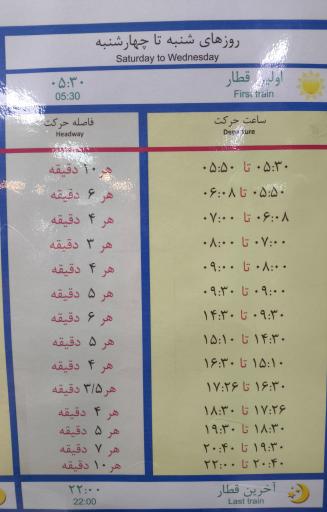 روزهای شنبه تا چهارشنبه
Saturday to Wednesday
اولین قطار ۰۵:۳۰
First train 05:30
ساعت حرکت فاصله حرکت
Departure Headway
۰۵:۳۰ تا ۰۵:۵۰ هر ۱۰ دقیقه
۰۵:۵۰ تا ۰۶:۰۸ هر ۶ دقیقه
۰۶:۰۸ تا ۰۷:۰۰ هر ۴ دقیقه
۰۷:۰۰ تا ۰۸:۰۰ هر ۳ دقیقه
۰۸:۰۰ تا ۰۹:۰۰ هر ۴ دقیقه
۰۹:۰۰ تا ۰۹:۳۰ هر ۵ دقیقه
۰۹:۳۰ تا ۱۴:۳۰ هر ۶ دقیقه
۱۴:۳۰ تا ۱۵:۱۰ هر ۵ دقیقه
۱۵:۱۰ تا ۱۶:۳۰ هر ۴ دقیقه
۱۶:۳۰ تا ۱۷:۲۶ هر ۳/۵ دقیقه
۱۷:۲۶ تا ۱۸:۳۰ هر ۴ دقیقه
۱۸:۳۰ تا ۱۹:۳۰ هر ۵ دقیقه
۱۹:۳۰ تا ۲۰:۴۰ هر ۷ دقیقه
۲۰:۴۰ تا ۲۲:۰۰ هر ۱۰ دقیقه
آخرین قطار ۲۲:۰۰
Last train 22:00